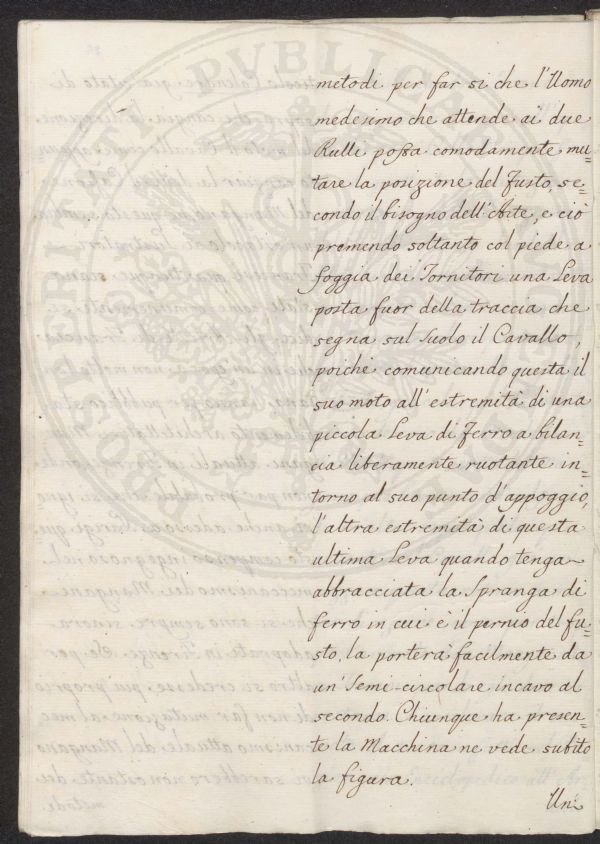 metodi per far si che l'Uomo
medesimo che attende ai due
Rulli possa comodamente mu=
tare la posizione del Fusto, se=
condo il bisogno dell'Arte, e ciò
premendo soltanto col piede a
foggia dei Tornitori una Leva
posta fuor della traccia che
segna sul suolo il Cavallo,
poichè comunicando questa il
suo moto all'estremità di una
piccola Leva di Ferro a bilan=
cia liberamente ruotante in=
torno al suo punto d'appoggio,
l'altra estremità di questa
ultima Leva quando tenga
abbracciata la Spranga di
ferro in cui è il pernio del fu=
sto, la porterà facilmente da
un' Semi-circolare incavo al
secondo. Chiunque ha presen=
te la Macchina ne vede subito
la figura.
Un'